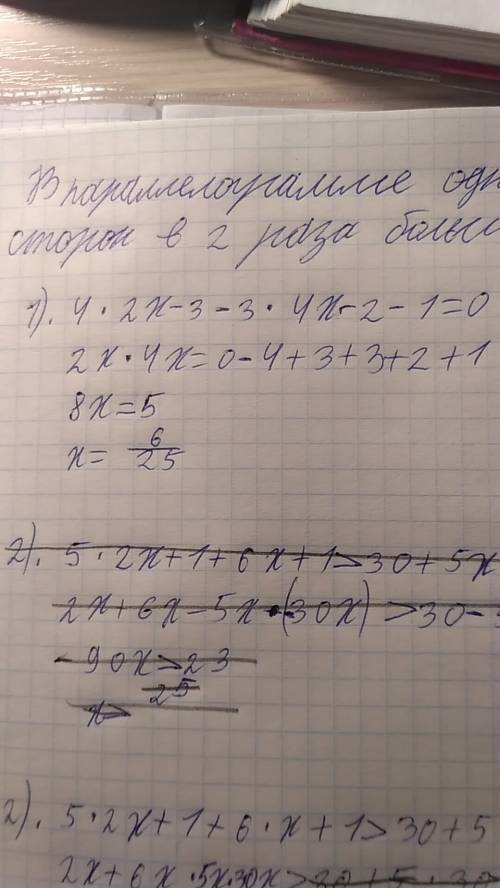 В параллелограмме одн
сторон в 2 раза больш
1). 4 · 2x - 3 - 3 · 4x - 2 - 1 = 0
2x · 4x = 0 - 4 + 3 + 3 + 2 + 1
8x = 5
x = 6/25
2). 5 · 2x + 1 + 6x + 1 > 30 + 5x
2x + 6x - 5x · (30x) > 30 -
- 90x > 23
x > 25
2). 5 · 2x + 1 + 6 · x + 1 > 30 + 5
2x + 6x · 5x · 30x > 30 + 5 · 30